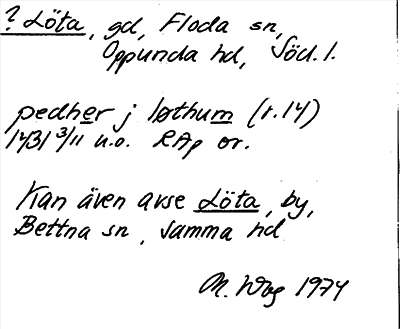 ? Löta, gd, Floda sn,
Oppunda hd, Söd. l.
pedher j løthum (r. 14)
1431 3/11 u.o. RAp or.
Kan även avse Löta, by,
Bettna sn, samma hd
M. Wbg 1974